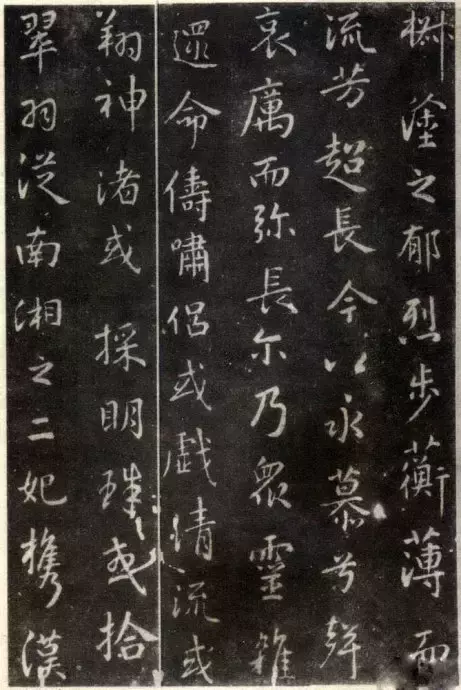 椒塗之郁烈步蘅薄而
流芳超長今以永慕兮聲
哀厲而弥長尓乃眾靈雜
遝命儔嘯侶或戲清流或
翔神渚或採明珠或拾
翠羽從南湘之二妃攜漢